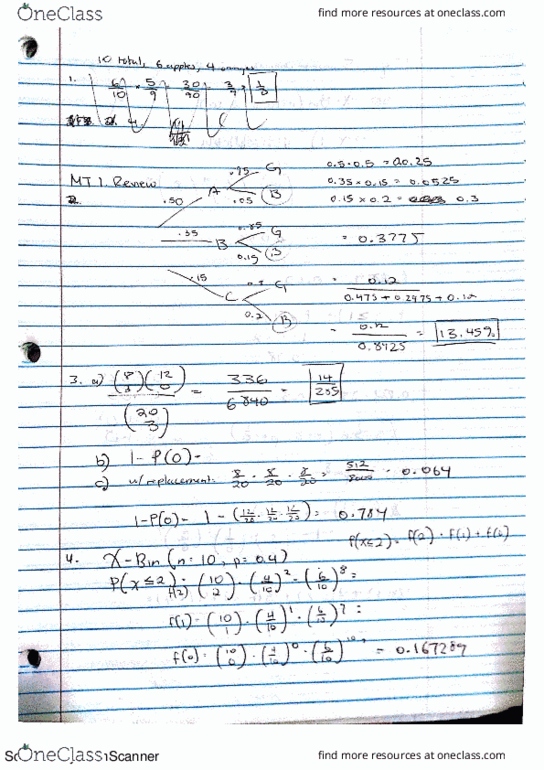 OneClass
find more resources at oneclass.com
10 total, 6 apples, 4 oranges
1. 6/10 × 5/9 = 30/90 = 3/9 = 1/3
MT 1. Review
2.
.50 A .95 G
.05 B
.35 B 0.85 G
0.15 B
.15 C G
0.2 B
0.5 · 0.5 = 0.25
0.35 × 0.15 = 0.0525
0.15 × 0.2 = 0.3
= 0.3775
= 0.12 / 0.475 + 0.2975 + 0.12
= 0.12 / 0.8925 = 13.45%
3. a) (8 3)(12 0) / (20 3) = 336 / 6840 = 14/285
b) 1 - P(0) =
c) w/ replacement: 8/20 · 8/20 · 8/20 = 512/8000 = 0.064
1-P(0) = 1 - (12/20 · 12/20 · 12/20) = 0.784
P(x≤2) = f(2) + f(1) + f(0)
4. X~Bin (n=10, p=0.4)
P(x≤2) = f(2) (10 2) · (4/10)^2 · (6/10)^8 =
f(1) = (10 1) · (4/10)^1 · (6/10)^9 =
f(0) = (10 0) · (4/10)^0 · (6/10)^10 = 0.167289
OneClass
Scanner
find more resources at oneclass.com